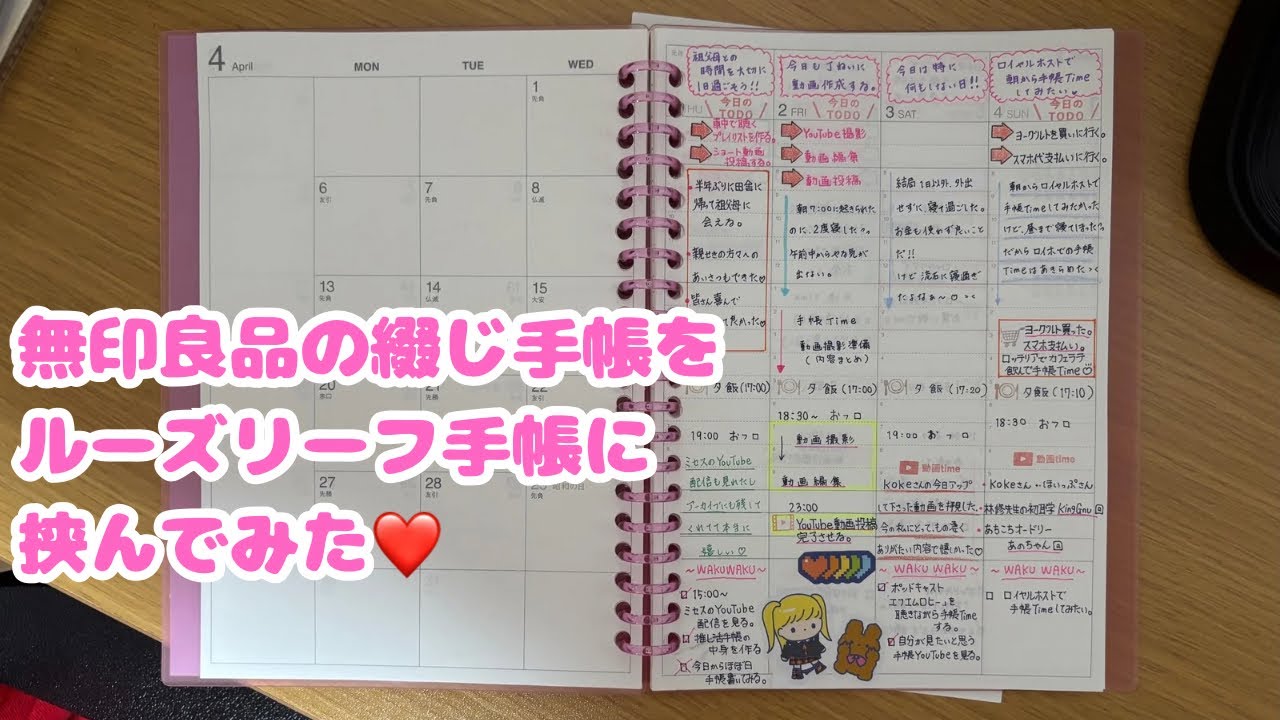 4 April
MON
TUE
WED
1
先負
6
友引
7
先負
8
仏滅
13
先負
14
仏滅
15
大安
20
赤口
21
先勝
22
27
先勝
28
友引
29 昭和の日
先負
無印良品の綴じ手帳を
ルーズリーフ手帳に
挟んでみた❤️
祖父母との
時間を大切に
1日過ごそう!!
HU
今日の
TODO
車中で聴く
プレイリストを作る。
ショート動画
投稿する。
半年ぶりに田舎に
帰って祖父母に
会える。
親せきの方々への
あいさつもできた♡
皆さん喜んで
て良かった♡
夕飯(17:00)
19:00 おフロ
ミセスのYouTube
配信も見れたし
アーカイブにも残して
くれてて本当に
嬉しい♡
~WAKUWAKU~
15:00~
ミセスのYouTube
配信を見る。
推し活手帳の
中身を作る
今日からほぼ日
手帳書いてみる。
今日も丁ねいに
動画作成する。
2 FRI
今日の
TODO
YouTube撮影
動画編集
動画投稿
朝7:00に起きられた
のに、2度寝した
午前中からやる気が
出ない。
手帳Time
動画撮影準備
(内容まとめ)
夕飯(17:00)
18:30~ おフロ
動画撮影
動画編集
23:00
YouTube動画投稿
完了させる。
今日は特に
何もしない日!!
3 SAT
結局1日以外、外出
せずに、寝て過ごした。
お金も使わず良いこと
だ!!
けど流石に寝過ぎ
だよなぁ~
夕飯(17:20)
19:00 おフロ
動画time
Kokeさんの今日アップ
して下さった動画を拝見した。
今の私にとってもの凄く
ありがたい内容で嬉しかった♡
~WAKU WAKU~
ポッドキャスト
「エフエムロビー」を
聴きながら手帳Time
する。
自分が見たいと思う
手帳YouTubeを見る。
ロイヤルホストで
朝から手帳Time
してみたい♡
4 SUN
今日の
TODO
ヨークルトを買いに行く。
スマホ代支払いに行く。
朝からロイヤルホストで
手帳Timeしてみたかった
けど、昼まで寝てしまった
だからロイホでの手帳
Timeはあきらめた
ヨークルト買った。
スマホ支払い。
ロッテリアでカフェラテ
飲んで手帳Time
夕飯(17:10)
18:30 おフロ
動画time
Kokeさん・ほいっぷさん
林修先生の初耳学 KingGnu回
あちこちオードリー
あのちゃん回
~WAKU WAKU~
ロイヤルホストで
手帳Timeしてみたい。